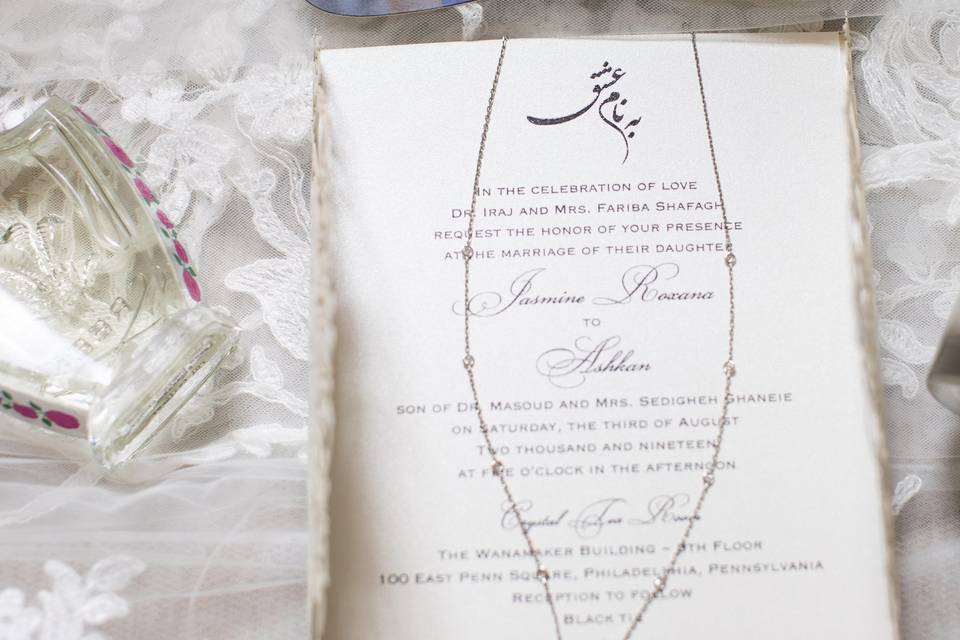 به نام عشق
IN THE CELEBRATION OF LOVE
DR. IRAJ AND MRS. FARIBA SHAFAGH
REQUEST THE HONOR OF YOUR PRESENCE
AT THE MARRIAGE OF THEIR DAUGHTER
Jasmine Roxana
TO
Ashkan
SON OF DR. MASOUD AND MRS. SEDIGHEH GHANEIE
ON SATURDAY, THE THIRD OF AUGUST
TWO THOUSAND AND NINETEEN
AT FIVE O'CLOCK IN THE AFTERNOON
Crystal Tea Room
THE WANAMAKER BUILDING – 9TH FLOOR
100 EAST PENN SQUARE, PHILADELPHIA, PENNSYLVANIA
RECEPTION TO FOLLOW
BLACK TIE